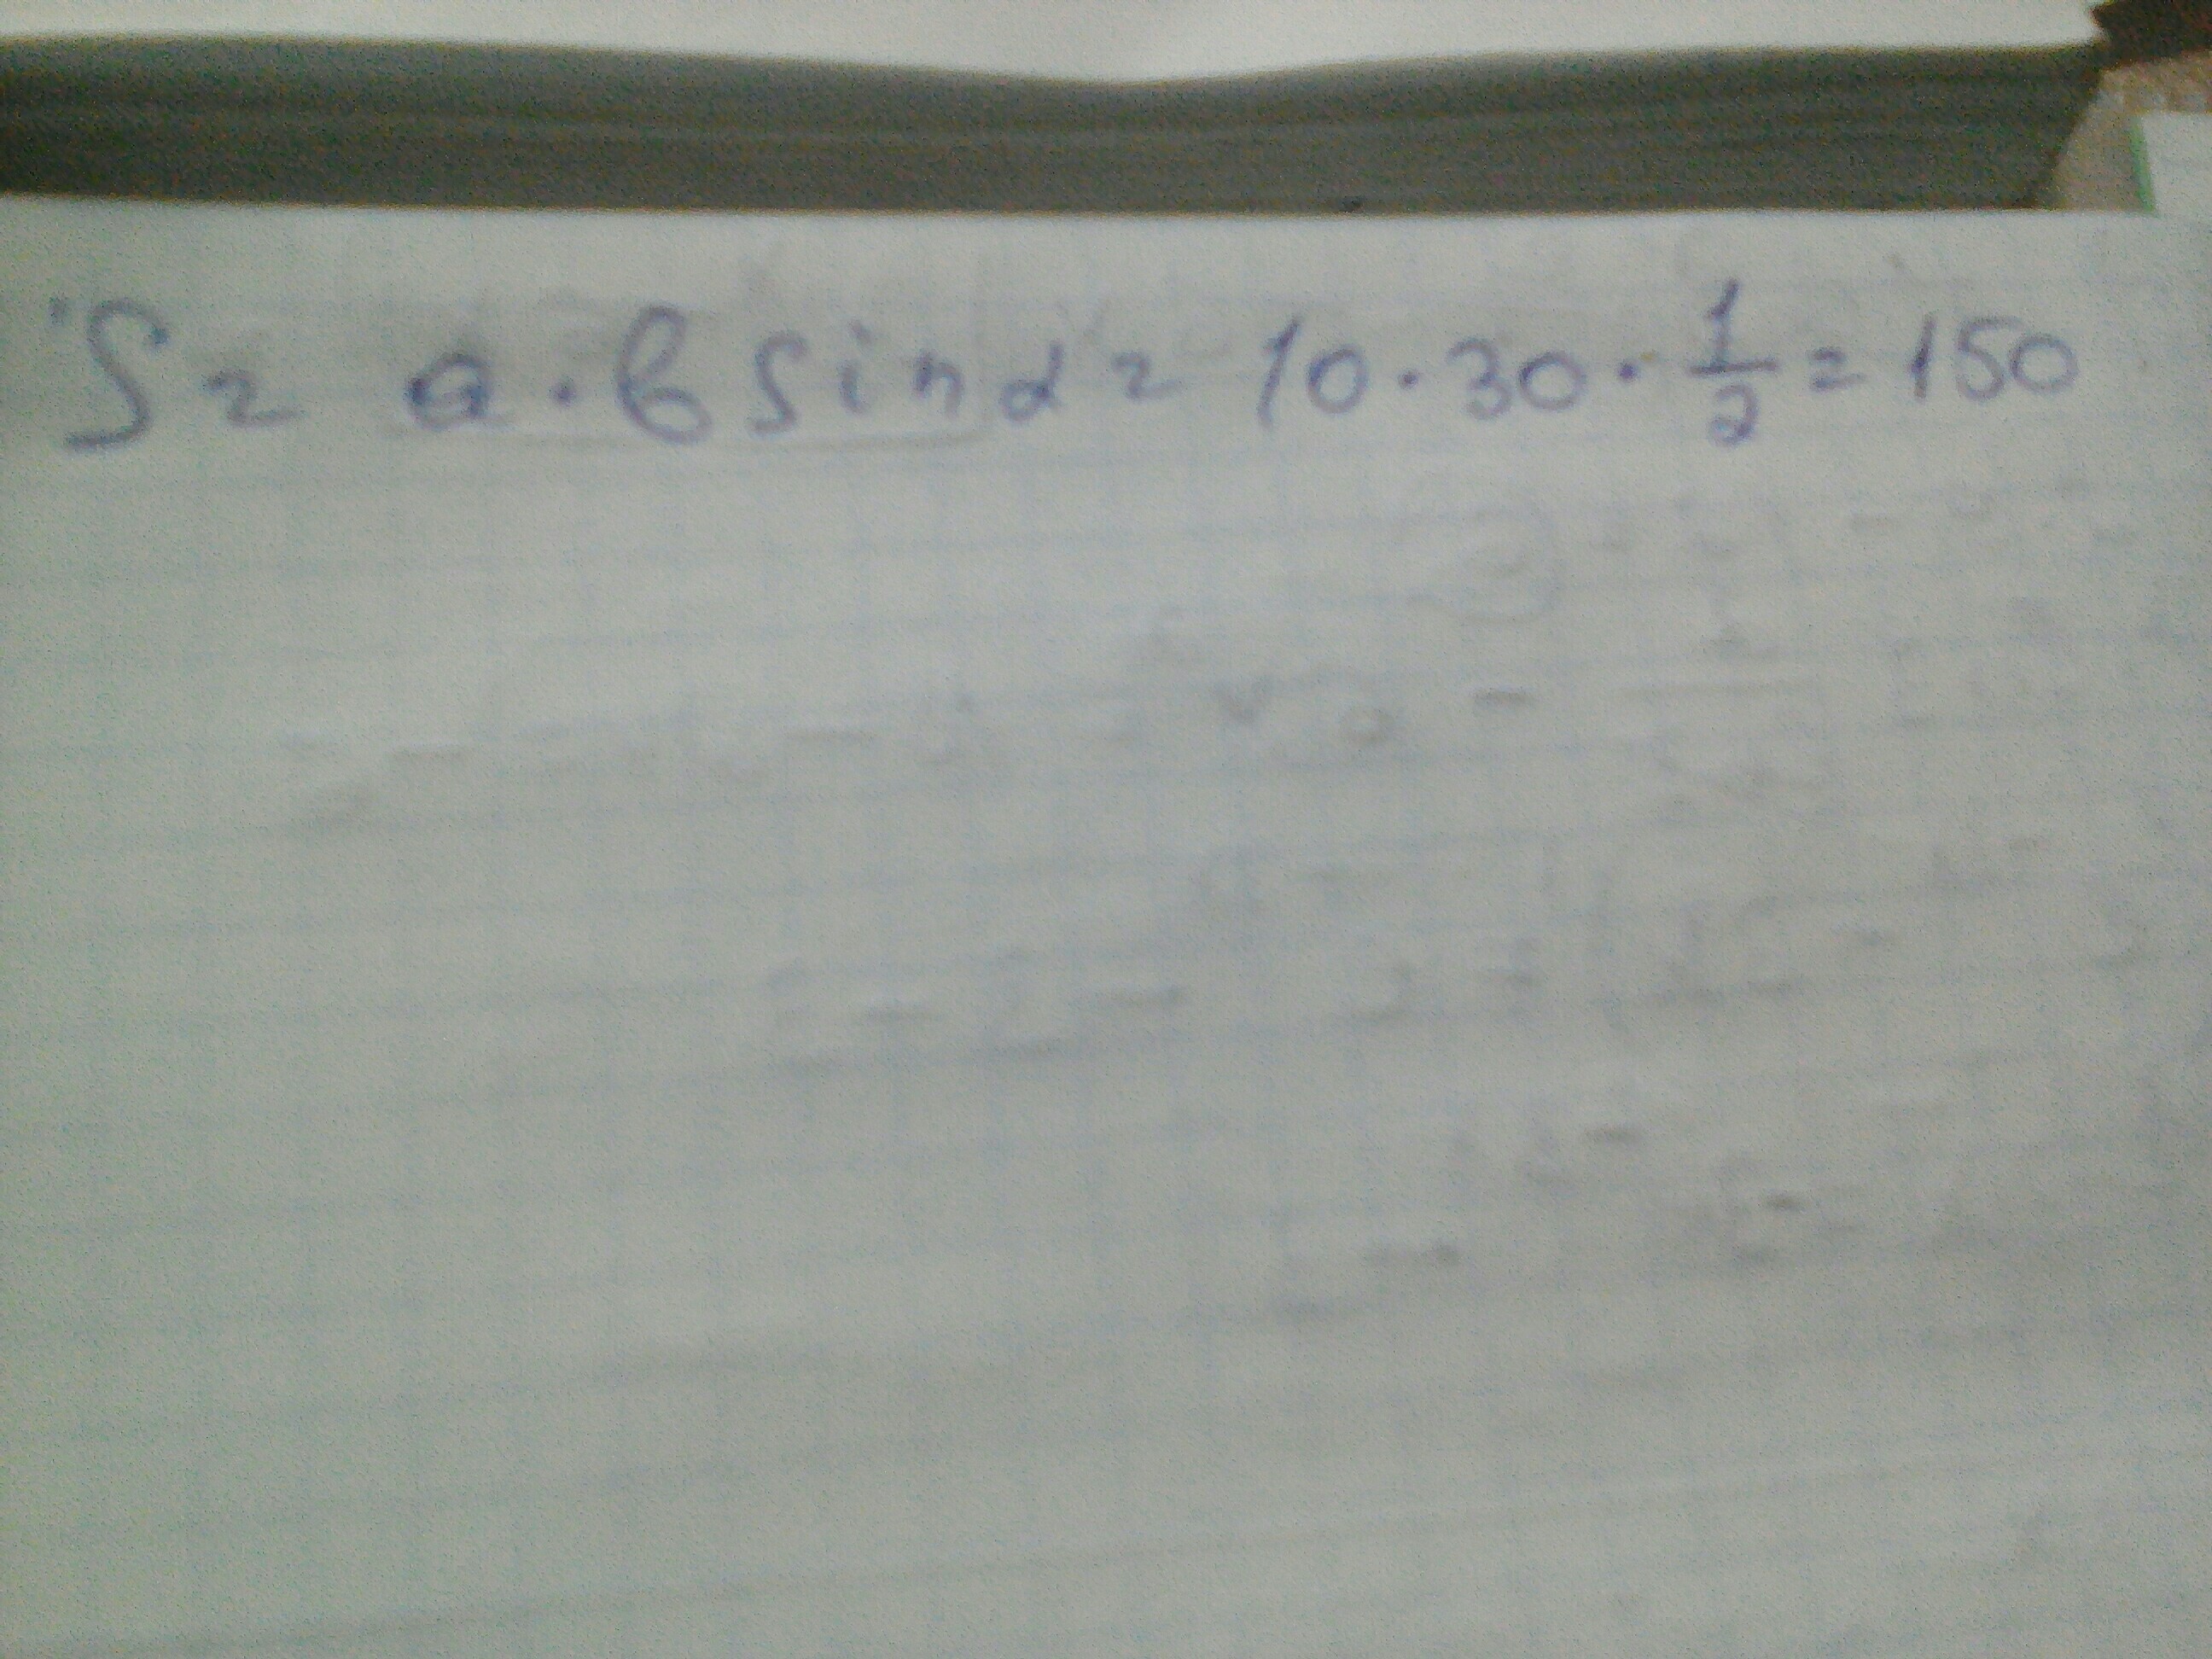 S = a · b sin α = 10 · 30 · 1/2 = 150